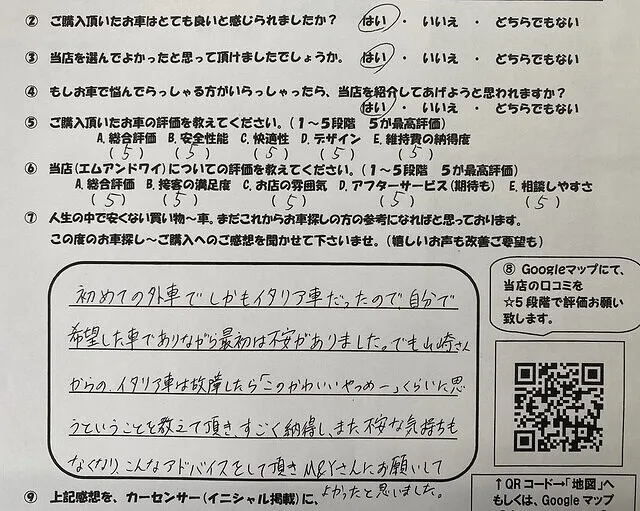 ② ご購入頂いたお車はとても良いと感じられましたか？ はい ・ いいえ ・ どちらでもない
③ 当店を選んでよかったと思って頂けましたでしょうか。 はい ・ いいえ ・ どちらでもない
④ もしお車で悩んでらっしゃる方がいらっしゃったら、当店を紹介してあげようと思われますか？
はい ・ いいえ ・ どちらでもない
⑤ ご購入頂いたお車の評価を教えてください。(1～5段階 5が最高評価)
A. 総合評価 B. 安全性能 C. 快適性 D. デザイン E. 維持費の納得度
(5) (5) (5) (5) (5)
⑥ 当店(エムアンドワイ)についての評価を教えてください。(1～5段階 5が最高評価)
A. 総合評価 B. 接客の満足度 C. お店の雰囲気 D. アフターサービス(期待も) E. 相談しやすさ
(5) (5) (5) (5) (5)
⑦ 人生の中で安くない買い物～車。まだこれからお車探しの方の参考になればと思っております。
この度のお車探し～ご購入へのご感想を聞かせて下さいませ。(嬉しいお声も改善ご要望も)
初めての外車でしかもイタリア車だったので、自分で
希望した車でありながら最初は不安がありました。でも山崎さん
からの、イタリア車は故障したら「このかわいいやつめー」くらいに思
うということを教えて頂き、すごく納得し、また、不安な気持ちも
なくなり、こんなアドバイスをして頂きM&Yさんにお願いして
よかったと思いました。
⑧ Googleマップにて、
当店の口コミを
☆5段階で評価お願い
致します。
↑QRコード→「地図」へ
もしくは、Googleマップ
⑨ 上記感想を、カーセンサー(イニシャル掲載)に、